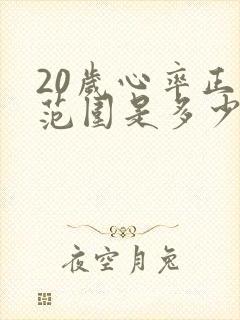 20岁心率正
范围是多少
夜空月兔